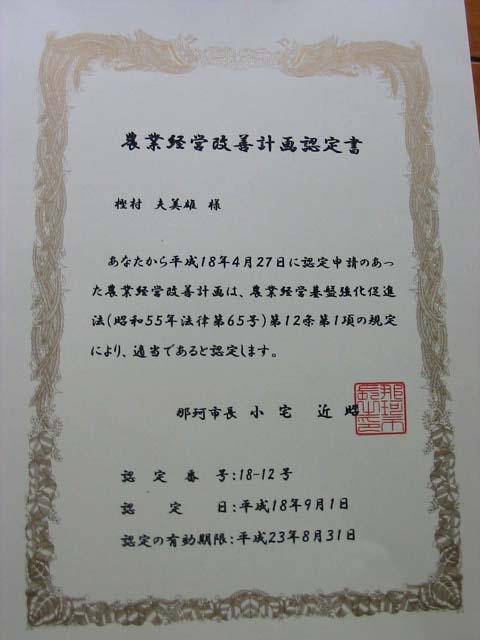 農業経営改善計画認定書
樫村 夫美雄 様
あなたから平成18年4月27日に認定申請のあっ
た農業経営改善計画は、農業経営基盤強化促進
法(昭和55年法律第65号)第12条第1項の規定
により、適当であると認定します。
那珂市長 小宅 近昭
認定番号:18-12号
認定日:平成18年9月1日
認定の有効期限:平成23年8月31日